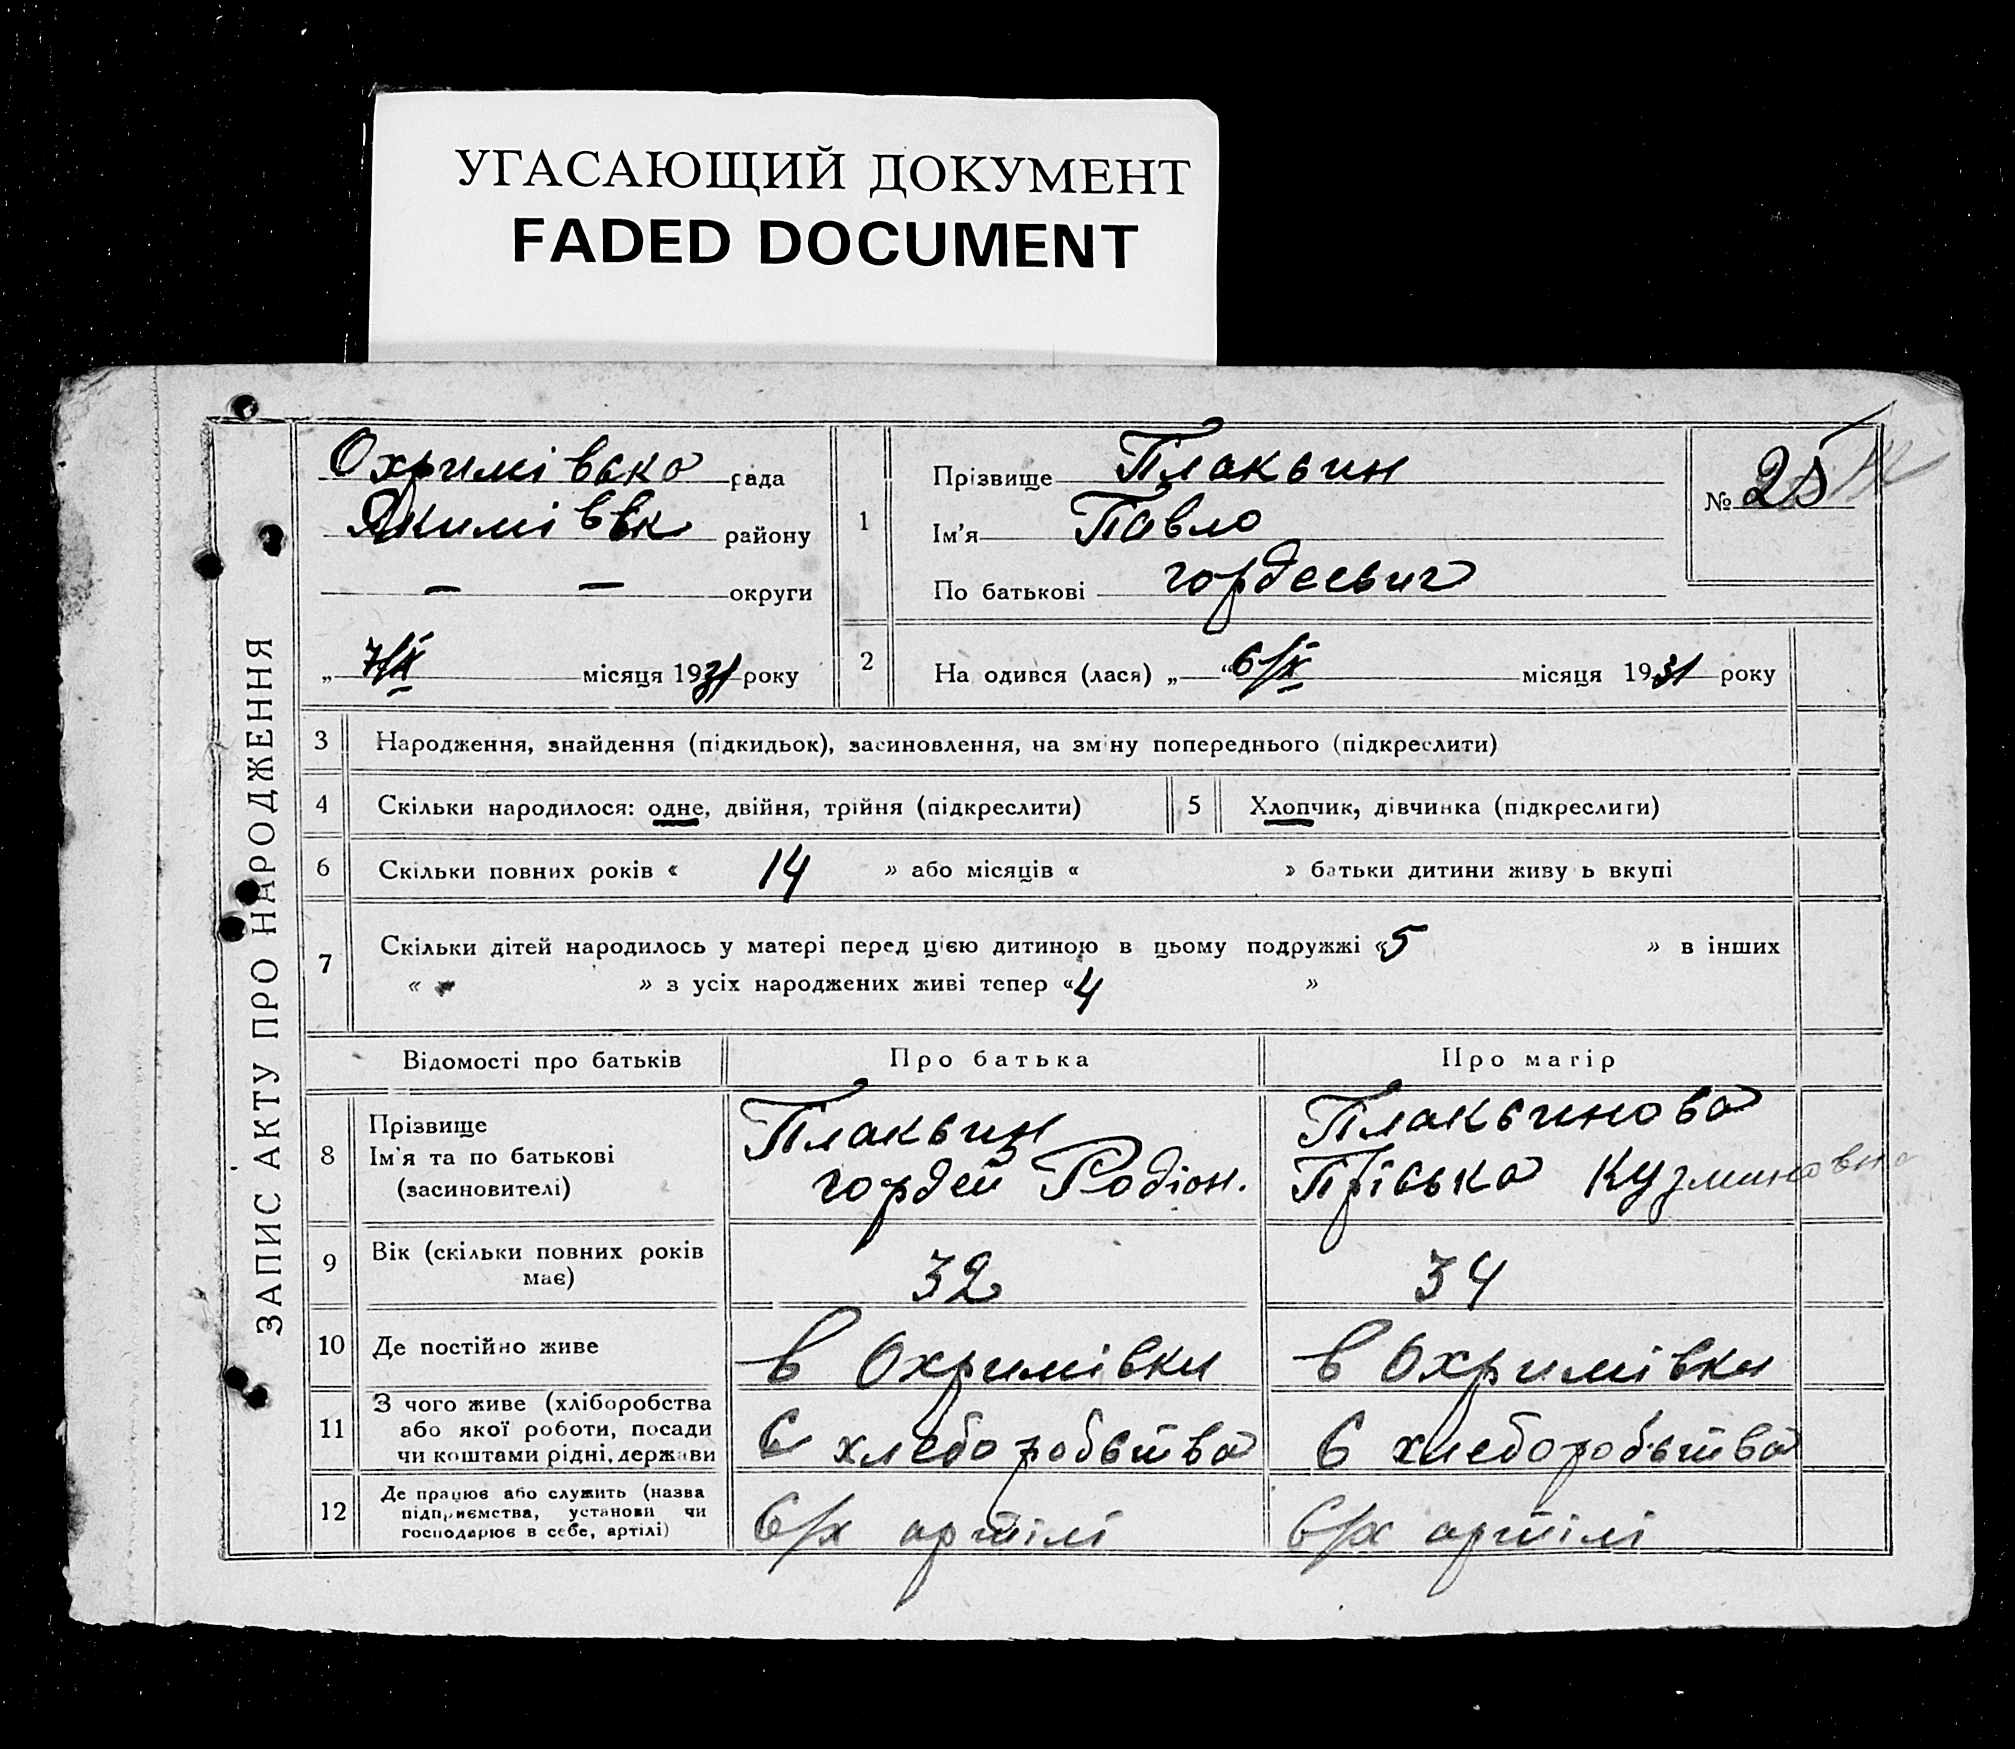 УГАСАЮЩИЙ ДОКУМЕНТ
FADED DOCUMENT
ЗАПИС АКТУ ПРО НАРОДЖЕННЯ
Охримівська рада
Якимівськ району
— — округи
„ 7/IX місяця 1931 року
1
Прізвище Плаксин
Ім'я Павло
По батькові гордеевич
№ 25
2 На одився (лася) „ “6/IX місяця 1931 року
3 Народження, знайдення (підкидьок), засиновлення, на зміну попереднього (підкреслити)
4 Скільки народилося: одне, двійня, трійня (підкреслити)
5 Хлопчик, дівчинка (підкреслити)
6 Скільки повних років « 14 » або місяців « » батьки дитини живу ь вкупі
7 Скільки дітей народилось у матері перед цією дитиною в цьому подружжі «5 » в інших
« » з усіх народжених живі тепер «4 »
Відомості про батьків Про батька Про матір
8 Прізвище
Ім'я та по батькові
(засиновителі)
Плаксин
гордей Родіон.
Плаксинова
Пріська Кузминовна
9 Вік (скільки повних років
має)
32 34
10 Де постійно живе в Охримівки в Охримівки
11 З чого живе (хліборобства
або якої роботи, посади
чи коштами рідні, держави
с хлеборобства с хлеборобства
12 Де працює або служить (назва
підприємства, установи чи
господарює в себе, артілі)
С/х артілі С/х артілі